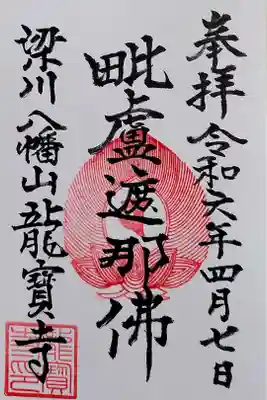 奉拝 令和六年四月七日
毗盧遮那佛
梁川八幡山龍寶寺